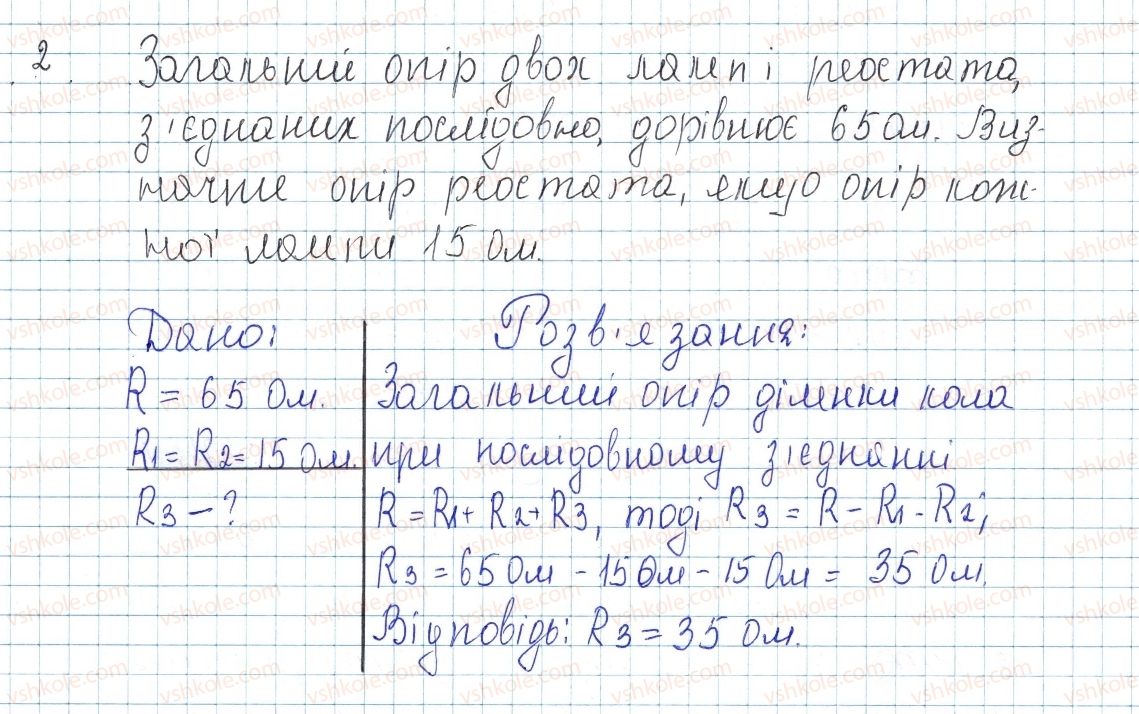 2. Загальний опір двох ламп і реостата,
з'єднаних послідовно, дорівнює 65 Ом. Виз-
начте опір реостата, якщо опір кож-
ної лампи 15 Ом.
Дано:
R = 65 Ом.
R1 = R2 = 15 Ом.
R3 - ?
Розв'язання:
Загальний опір ділянки кола
при послідовному з'єднанні
R = R1 + R2 + R3, тоді R3 = R - R1 - R2;
R3 = 65 Ом - 15 Ом - 15 Ом = 35 Ом.
Відповідь: R3 = 35 Ом.